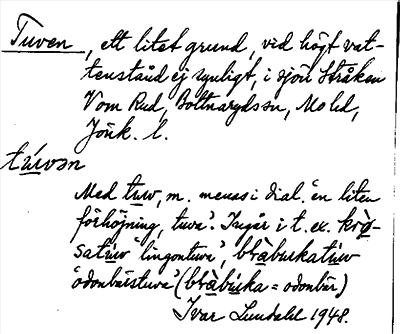 Tuven, ett litet grund, vid högt vat-
tenstånd ej synligt, i sjön Stråken
Vom Rud, Bottnaryds sn, Mo hd,
Jönk. l.
túvən
Med tuv, m. menas i dial. "en liten
förhöjning, tuva". Ingår i t. ex. krø̀-
satúv "lingontuva", blåburkatúv
"odonbärstuva" (blåburka = odonbär)
Ivar Lundahl 1948.